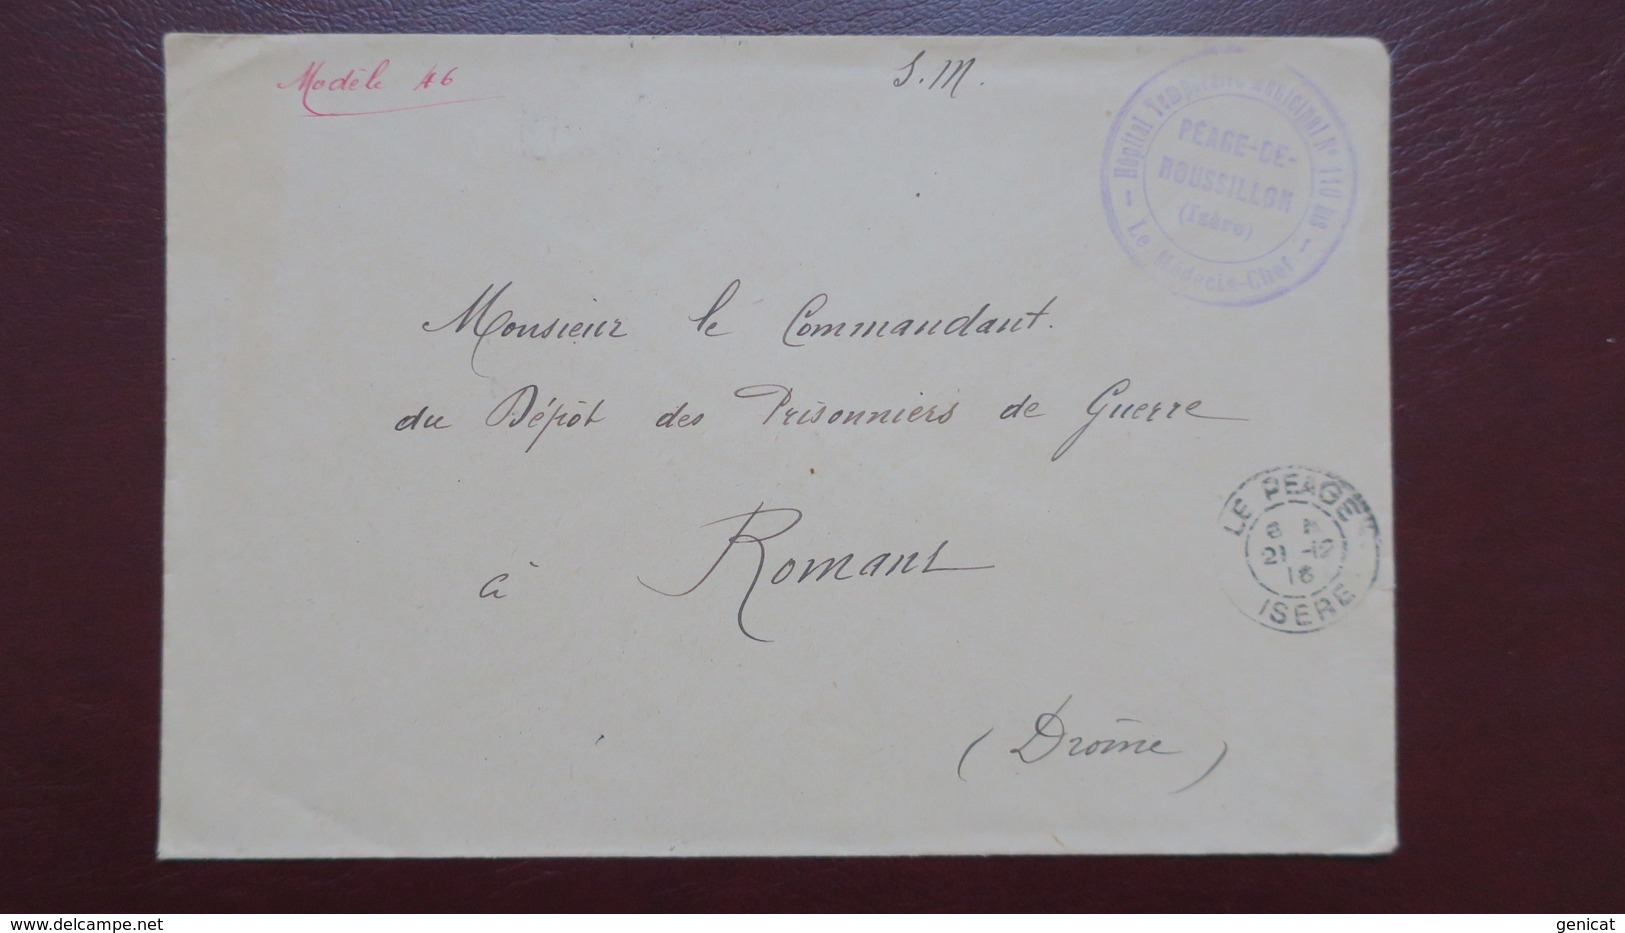 Modèle 46
S. M.
Hôpital Temporaire Municipal N° 110 bis
PÉAGE-DE-
ROUSSILLON
(Isère)
- Le Médecin-Chef -
Monsieur le Commandant.
du Dépôt des Prisonniers de Guerre
à Romans
(Drôme)
LE PEAGE
21 -12
16
ISERE
genicat